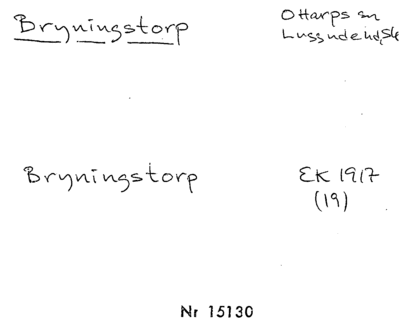 Bryningstorp
Ottarps sn
Luggude hd, Sk
Bryningstorp
EK 1917
(19)
Nr 15130